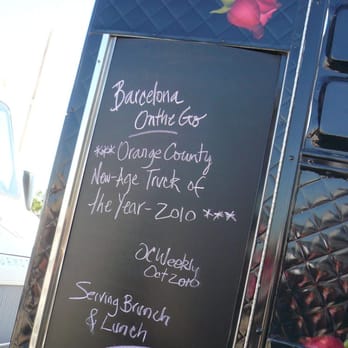 Barcelona
OntheGo
*** Orange County
New-Age Truck of
the Year-2010 ***
OC Weekly
Oct 2010
Serving Brunch
& Lunch